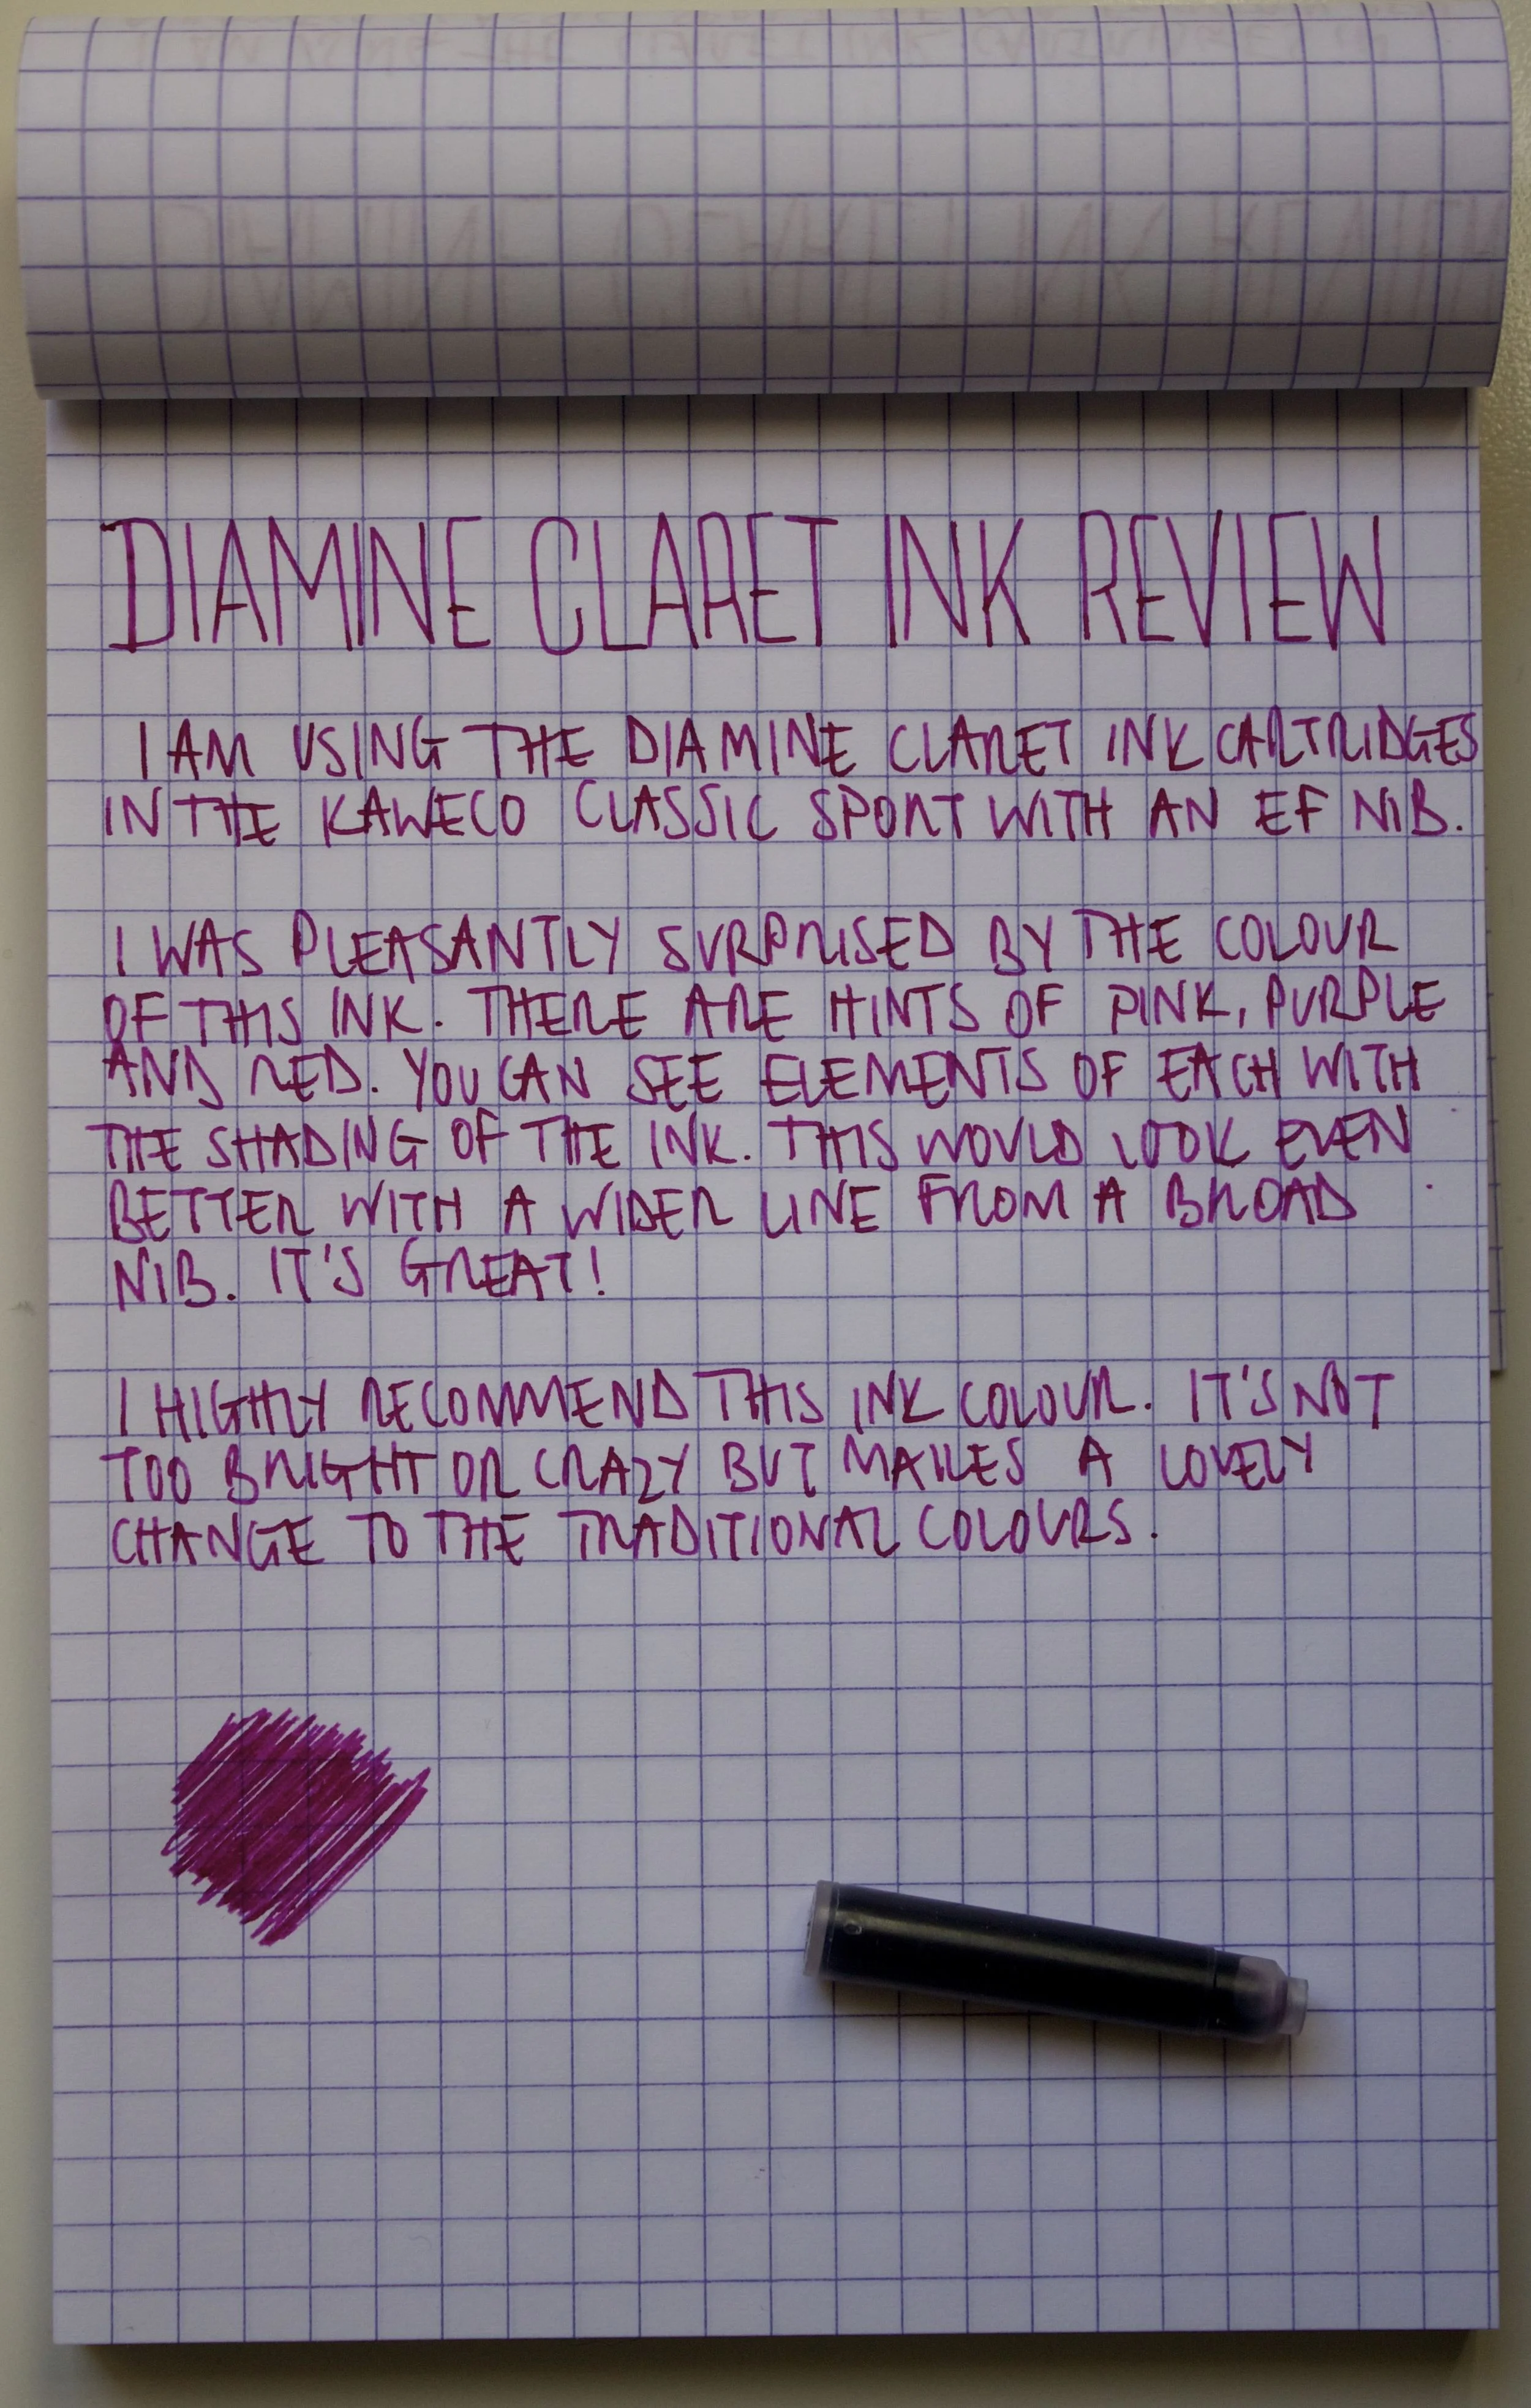 DIAMINE CLARET INK REVIEW
I AM USING THE DIAMINE CLARET INK CARTRIDGES
IN THE KAWECO CLASSIC SPORT WITH AN EF NIB.
I WAS PLEASANTLY SURPRISED BY THE COLOUR
OF THIS INK. THERE ARE HINTS OF PINK, PURPLE
AND RED. YOU CAN SEE ELEMENTS OF EACH WITH
THE SHADING OF THE INK. THIS WOULD LOOK EVEN
BETTER WITH A WIDER LINE FROM A BROAD
NIB. IT'S GREAT!
I HIGHLY RECOMMEND THIS INK COLOUR. IT'S NOT
TOO BRIGHT OR CRAZY BUT MAKES A LOVELY
CHANGE TO THE TRADITIONAL COLOURS.